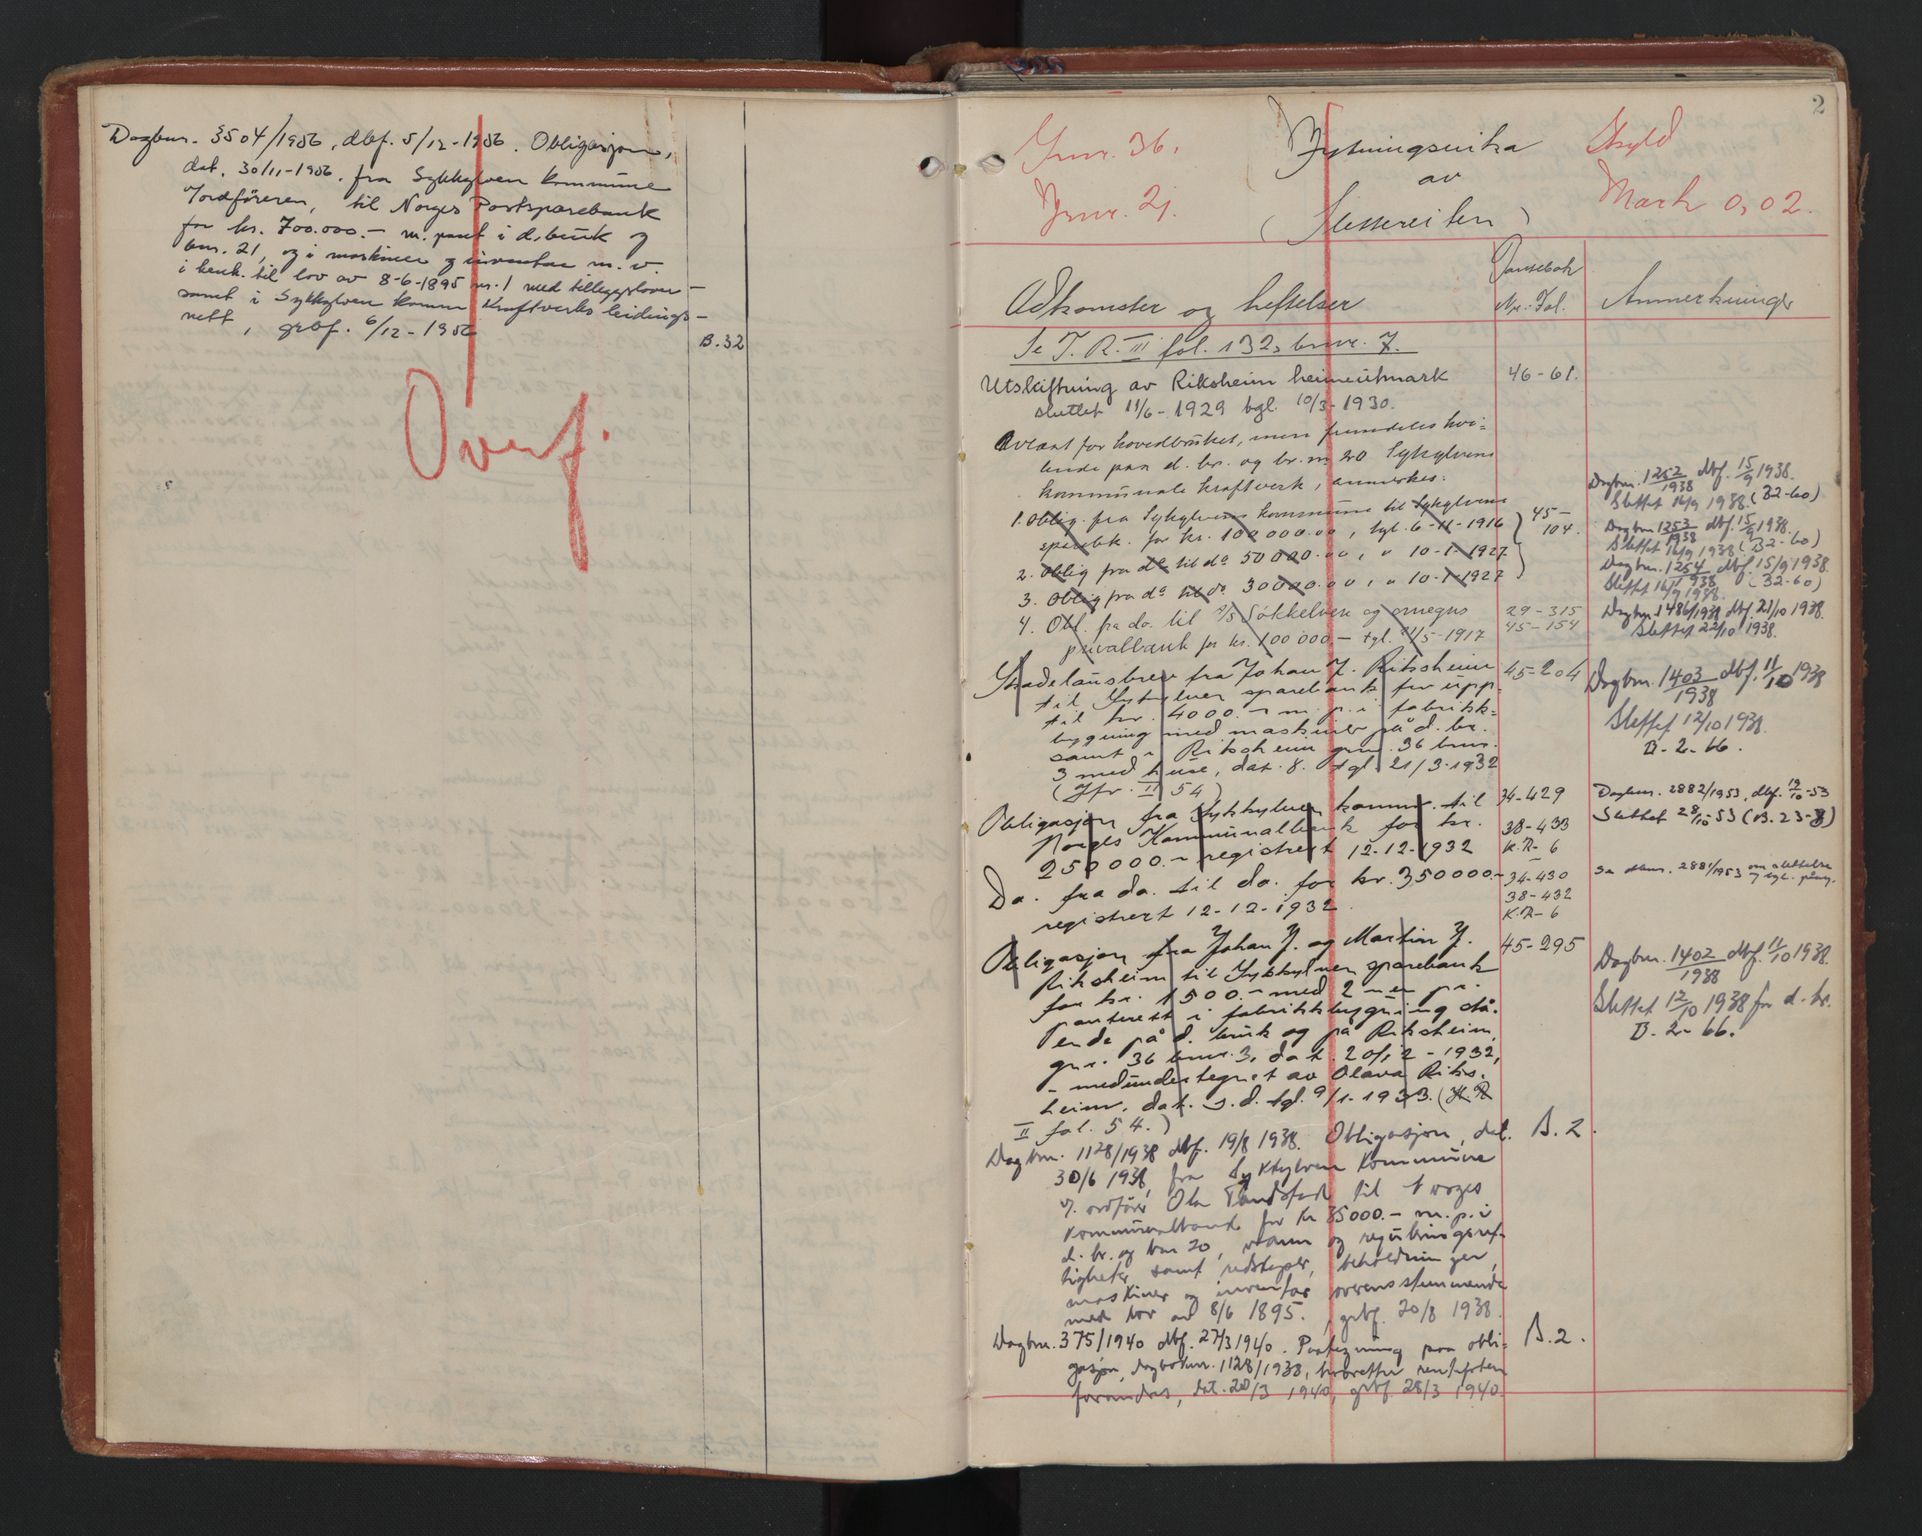 Dagbnr. 3504/1956, dbf. 5/12-1956. Obligasjon,
dat. 30/11-1956. fra Sykkylven kommune
v/ordføreren, til Norges Postsparebank
for kr. 700.000.- m. pant i d. bruk og
bnr. 21, og i maskiner og inventar m. v.
i henh. til lov av 8-6-1895 nr. 1 med tilleggslover -
samt i Sykkylven komm. Kraftverks leidings-
nett, grbf. 6/12-1956
B. 32
Overf.
2
Gnr. 36.
Bnr. 21.
av
(Slettereiten)
Skyld
Mark 0,02.
Adkomster og heftelser
Pantebok
Nr. Fol.
Anmerkninger
Se P. R. III fol. 132, bnr. 7.
Utskiftning av Riksheim heimeutmark
sluttet 11/6-1929 tgl. 10/3-1930.
46-61.
Avlæst for hovedbruket, men fremdeles hvi-
lende paa d. br. og br. nr 20 Sykylvens
kommunale kraftverk, anmerkes:
1. Oblig. fra Sykylvens kommune til Sykylvens
sparebk. for kr. 100 000.00, tgl. 6-11-1916
2. Oblig fra do til do 50000.00, " 10-1-1927
3. Oblig fra do til do 30000.00, " 10-1-1927
45-
104.
Dagbnr. 1252/1938 dbf. 15/9 1938.
Slettet 16/9 1938. (B2-60)
Dagbnr 1253/1938 dbf. 15/9 1938.
Slettet 16/9 1938 (B2-60)
Dagbnr. 1254/1938 dbf 15/9 1938.
Slettet 16/9 1938. (B2-60)
4. Obl. fra do. til A/S Søkkelven og omegns
privatbank for kr. 100 000.- tgl. 21/5-1917
29-315
45-154
Dagbnr 1486/1938 dbf 21/10 1938.
Slettet 22/10 1938.
Skadelausbrev fra Johan J. Riksheim
til Sykylven sparebank for upp-
til kr. 4000.- m. p. i fabrikk-
bygning med maskiner på d. br.
samt i Riksheim gnr. 36 bnr.
3 med huse, dat. 8. tgl. 21/3-1932
(Jfr. II 54)
45-204
Dagbnr. 1403/1938 dbf. 11/10 1938
Slettet 12/10 1938.
B-2-66.
Obligasjon fra Sykkylven komm. til
Norges Kommunalbank for kr.
250000.- registrert 12-12-1932
34-429
38-433
K.R- 6
Dagbnr. 2882/1953, dbf. 19/10-53
Slettet 28/10-53 (B. 23-8)
Do. fra do. til do. for kr. 350000.-
registrert 12-12-1932
34-430
38-432
K.R- 6
Se dbnr. 2881/1953
Obligasjon fra Johan J. og Martin J.
Riksheim til Sykkylven sparebank
for kr. 1500.- med 2-en pr.
panterett i fabrikkbygning stå-
ende på d. bruk og på Riksheim
gnr. 36 bnr. 3, dat. 20/12-1932,
- medundertegnet av Olava Riks-
heim, dat. s.d. tgl. 9/1-1933. (H.R
II fol. 54.)
45-295
Dagbnr. 1402/1938 dbf. 11/10 1938.
Slettet 12/10 1938 for d. br.
B-2-66.
Dagbnr. 1128/1938 dbf. 19/8 1938. Obligasjon, dat.
30/6 1938, fra Sykkylven Kommune
v/ ordfører Ola Tandstad til Norges
Kommunalbank for kr 35000.- m. p. i
d. br. og bnr 20, vann og reguleringsret-
tigheter, samt redskaper, beholdninger,
maskiner og inventar overensstemmende
med lov av 8/6 1895., grbf. 20/8 1938.
B. 2.
Dagbnr. 375/1940 dbf. 27/3 1940. Paategning paa obli-
gasjon, dagboknr. 1128/1938, hvoretter rentefoten
forandres, dat. 20/3 1940, grbf 28/3 1940.
B. 2.